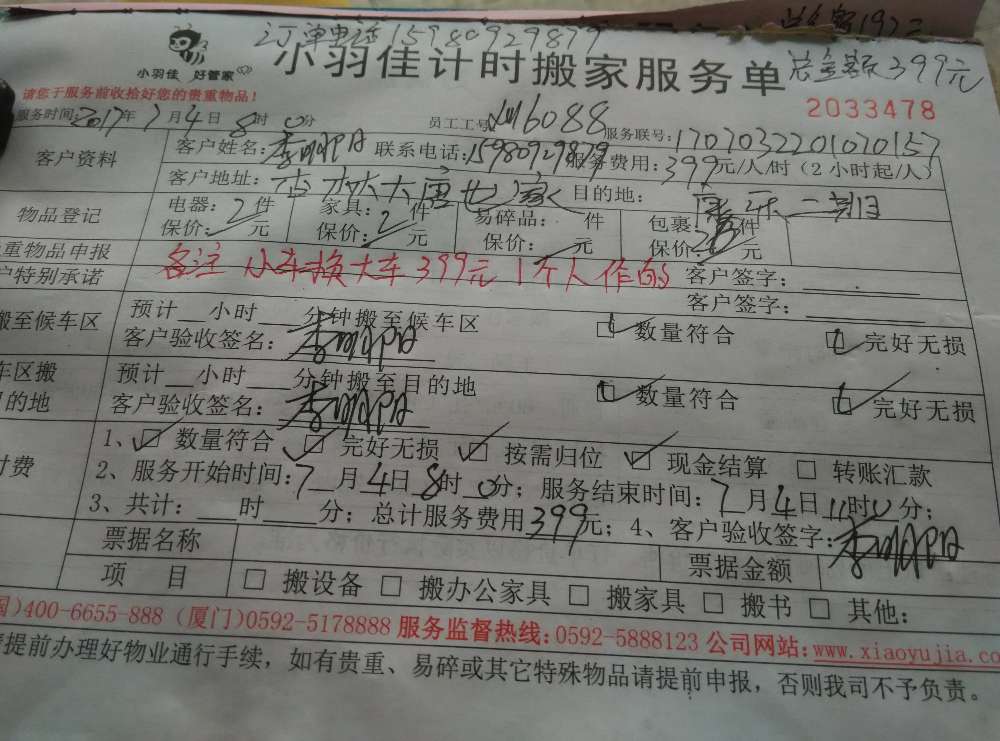 总金额 192
订单电话15980929879
小羽佳 好管家
小羽佳计时搬家服务单 总金额399元
请您于服务前收拾好您的贵重物品！
2033478
服务时间：2017年7月4日8时0分 员工工号：XM6088 服务联号：1707032201070157
客户资料 客户姓名： 联系电话：15980929879 服务费用：399元/人/时（2小时起/人）
客户地址： 大唐世家 目的地： 二期
物品登记 电器：2件 家具：2件 易碎品： 件 包裹： 件
保价： 元 保价： 元 保价： 元 保价： 元
重物品申报 备注 小车换大车399元1个人作的 客户签字：
户特别承诺 客户签字：
搬至候车区 预计 小时 分钟搬至候车区 数量符合 完好无损
客户验收签名：
车区搬 预计 小时 分钟搬至目的地 数量符合 完好无损
目的地 客户验收签名：
1、 数量符合 完好无损 按需归位 现金结算 转账汇款
付费 2、服务开始时间：7月4日8时0分；服务结束时间：7月4日11时0分；
3、共计： 时 分；总计服务费用399元；4、客户验收签字：
票据名称 票据金额
项 目 搬设备 搬办公家具 搬家具 搬书 其他：
国)400-6655-888 (厦门)0592-5178888 服务监督热线：0592-5888123 公司网站：www.xiaoyujia.co
请提前办理好物业通行手续，如有贵重、易碎或其它特殊物品请提前申报，否则我司不予负责。